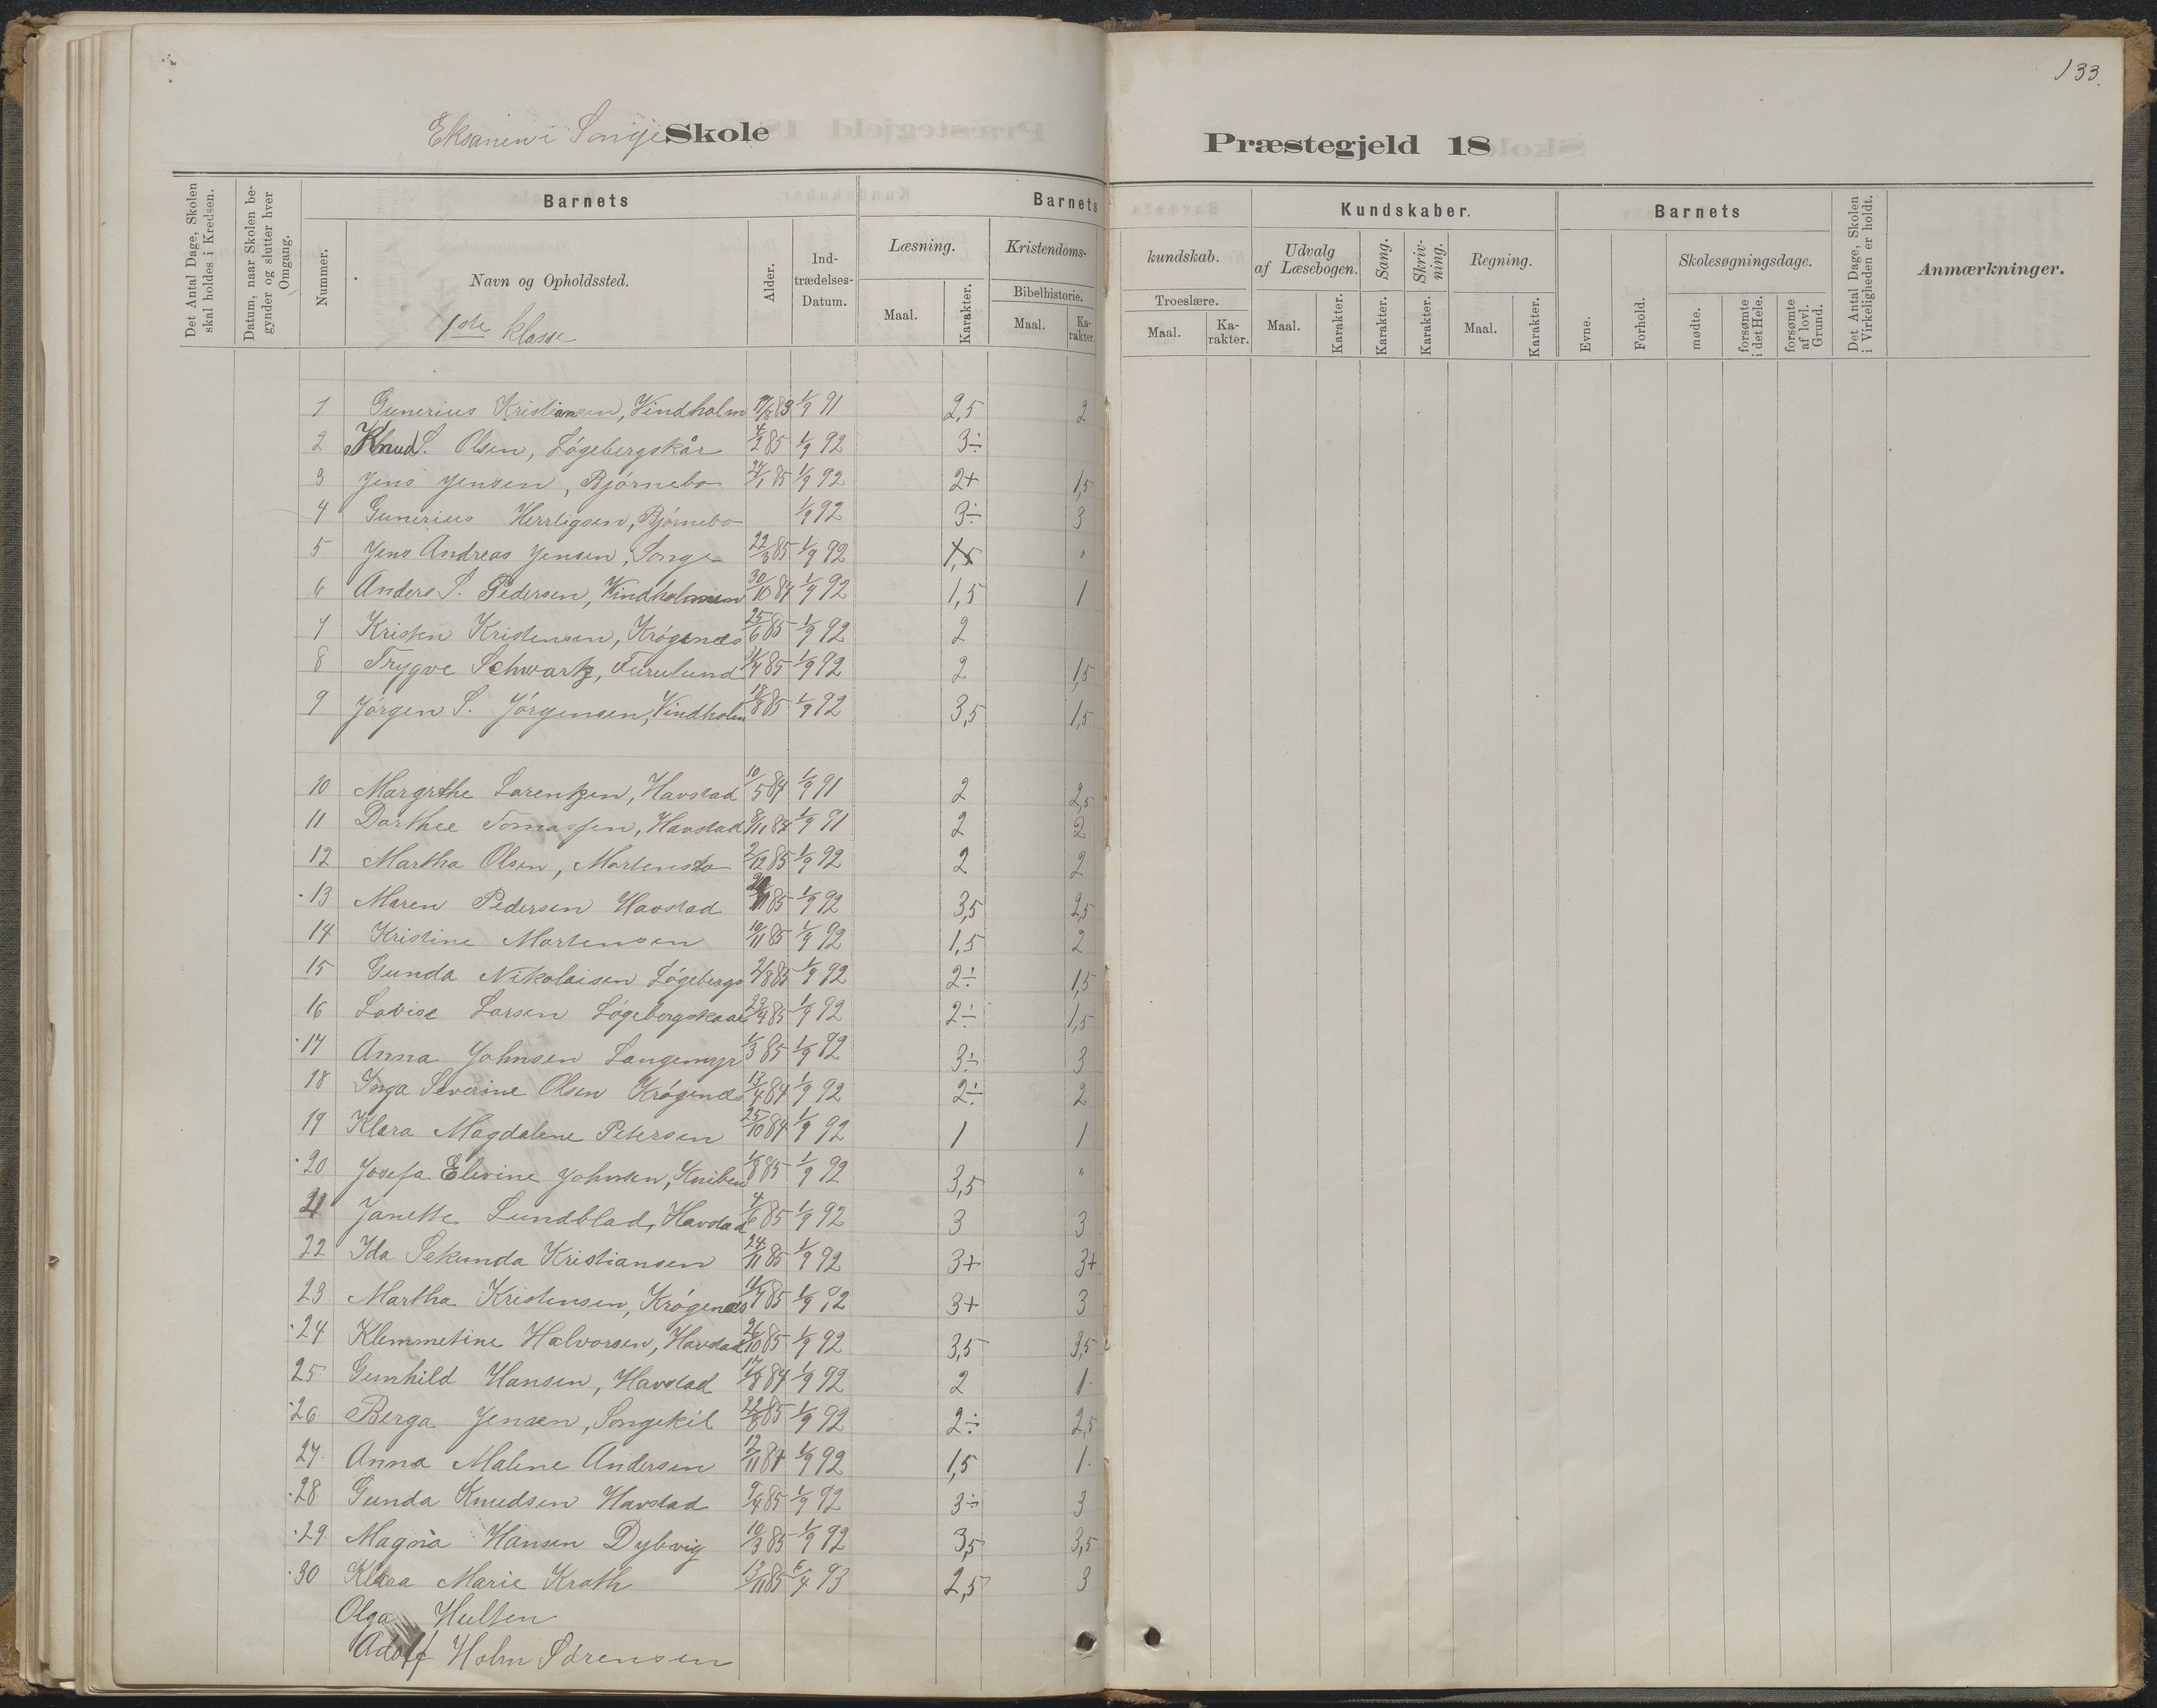 133.
Eksamen i Songe Skole
Præstegjeld 18
Det Antal Dage, Skolen skal holdes i Kredsen.
Datum, naar Skolen begynder og slutter hver Omgang.
Barnets
Nummer.
Navn og Opholdssted.
1ste klasse
Alder.
Indtrædelses-Datum.
Barnets
Læsning.
Maal.
Karakter.
Kristendoms-
Bibelhistorie.
Maal.
Karakter.
kundskab.
Troeslære.
Maal.
Karakter.
Kundskaber.
Udvalg af Læsebogen.
Maal.
Karakter.
Sang.
Karakter.
Skrivning.
Karakter.
Regning.
Maal.
Karakter.
Barnets
Evne.
Forhold.
Skolesøgningsdage.
mødte.
forsømte i det Hele.
forsømte af lovl. Grund.
Det Antal Dage, Skolen i Virkeligheden er holdt.
Anmærkninger.
1 Gunerius Kristiansen, Vindholm 83 1/9 91 2,5 2
2 Knud S. Olsen, Løgebergskår 4/2 85 1/9 92 3÷
3 Jens Jensen, Bjørnebo 27/1 85 1/9 92 2+ 1,5
4 Gunerius Herrligsen, Bjørnebo 1/9 92 3÷ 3
5 Jens Andreas Jensen, Songe 22/3 85 1/9 92 1,5 "
6 Anders S. Pedersen, Vindholmen 30/10 84 1/9 92 1,5 1
7 Kristen Kristensen, Krøgenæs 25/6 85 1/9 92 2
8 Trygve Schwartz, Furulund 85 1/9 92 2 1,5
9 Jørgen S. Jørgensen, Vindholm 18/8 85 1/9 92 3,5 1,5
10 Margrthe Lorentzen, Havstad 10/5 84 1/9 91 2 2,5
11 Dorthee Tomassen, Havstad 8/11 84 1/9 91 2 2
12 Martha Olsen, Mortensbo 2/12 85 1/9 92 2 2
13 Maren Pedersen Havstad 85 1/9 92 3,5 2,5
14 Kristine Mortensen 10/11 85 1/9 92 1,5 2
15 Gunda Nikolaisen Løgebergs 2/8 85 1/9 92 2÷ 1,5
16 Lovise Larsen Løgebergskaar 23/4 85 1/9 92 2÷ 1,5
17 Anna Johnsen Langemyr 1/3 85 1/9 92 3÷ 3
18 Inga Severine Olsen Krøgenæs 13/4 84 1/9 92 2÷ 2
19 Klara Magdalene Petersen 25/10 84 1/9 92 1 1
20 Josefa Elevine Johnsen, Kniben 1/8 85 1/9 92 3,5 "
21 Janette Lundblad, Havstad 4/6 85 1/9 92 3 3
22 Ida Sekunda Kristiansen 24/11 85 1/9 92 3+ 3+
23 Martha Kristensen, Krøgenæs 11/7 85 1/9 92 3+ 3
24 Klemmetine Halvorsen, Havstad 26/10 85 1/9 92 3,5 3,5
25 Gunhild Hansen, Havstad 17/8 84 1/9 92 2 1
26 Berga Jensen, Songekil 22/8 85 1/9 92 2÷ 2,5
27. Anna Malene Andersen 12/11 84 1/9 92 1,5 1
28 Gunda Knudsen Havstad 9/4 85 1/9 92 3÷ 3
29. Magna Hansen Dybvig 10/3 85 1/9 92 3,5 3,5
30 Klara Marie Kroth 13/11 85 6/4 93 2,5 3
Olga Hulten
Adolf Holm Sørensen